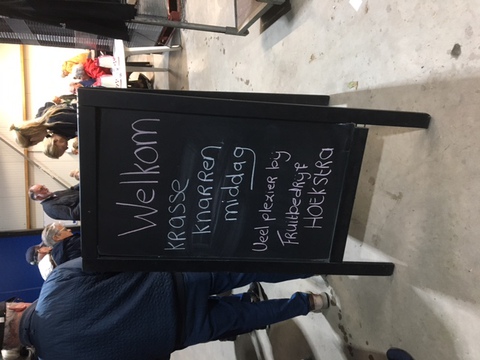 Welkom
KRASSE
KNARREN
middag
Veel plezier by
Fruitbedryf
HOEKSTRA